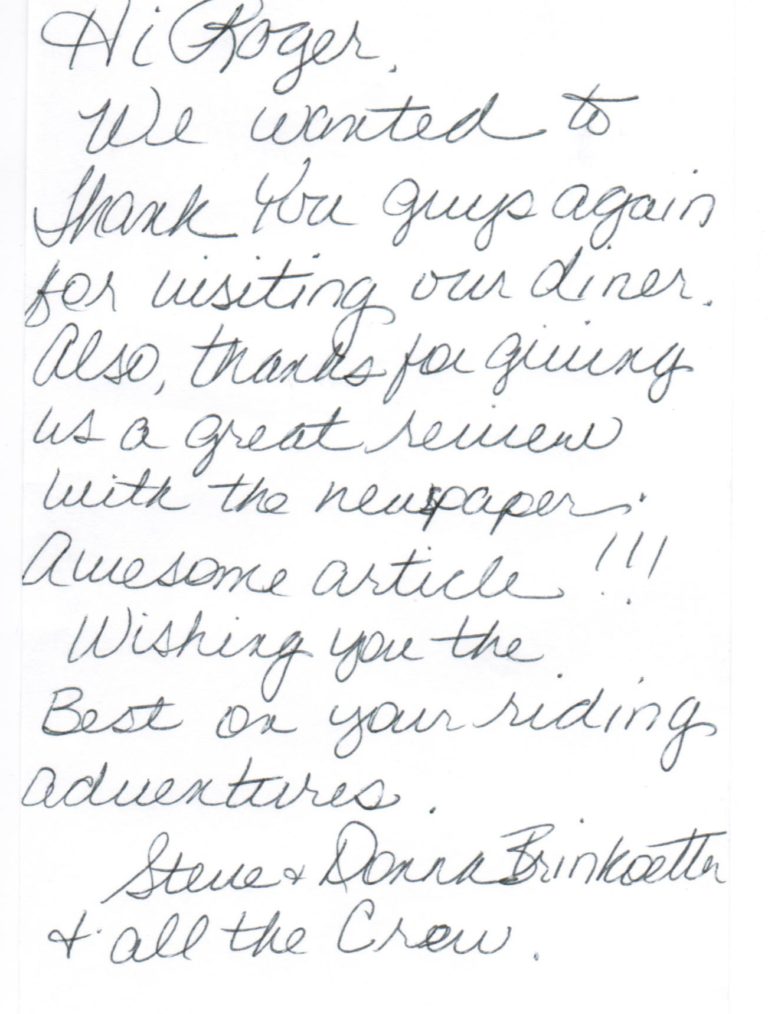 Hi Roger,
We wanted to
Thank You guys again
for visiting our diner.
Also, thanks for giving
us a great review
with the newspaper.
Awesome article!!!
Wishing you the
Best on your riding
adventures.
Steve & Donna Brinkoetter
& all the Crew.